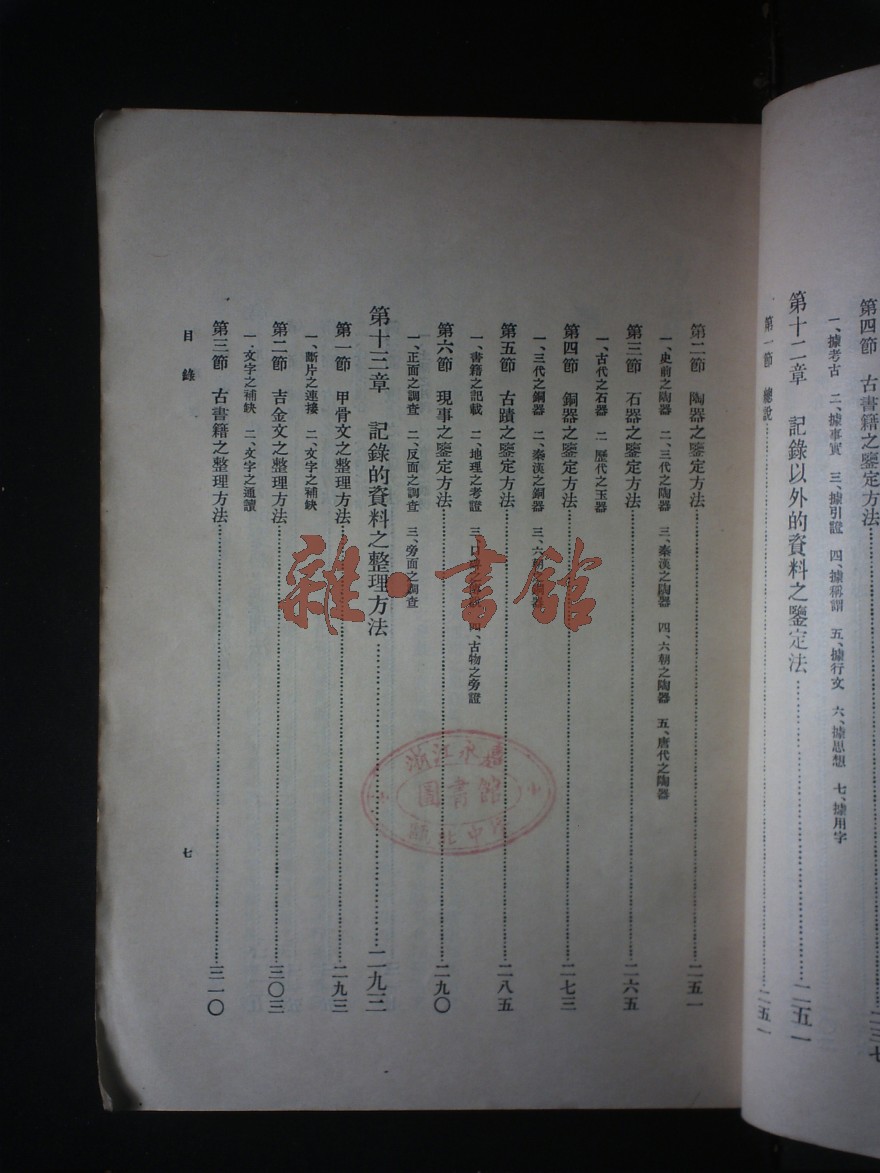 第四節　古書籍之鑒定方法……二三七
一、據考古　二、據事實　三、據引證　四、據稱謂　五、據行文　六、據思想　七、據用字
第十二章　記錄以外的資料之鑒定法……二五一
第一節　總說……二五一
第二節　陶器之鑒定方法……二五一
一、史前之陶器　二、三代之陶器　三、秦漢之陶器　四、六朝之陶器　五、唐代之陶器
第三節　石器之鑒定方法……二六五
一、古代之石器　二　歷代之玉器
第四節　銅器之鑒定方法……二七三
一、三代之銅器　二、秦漢之銅器　三、六朝之銅器
第五節　古蹟之鑒定方法……二八五
一、書籍之記載　二、地理之考證　三、口　四、古物之旁證
第六節　現事之鑒定方法……二九〇
一、正面之調查　二、反面之調查　三、旁面之調查
第十三章　記錄的資料之整理方法……二九三
第一節　甲骨文之整理方法……二九三
一、斷片之連接　二、文字之補缺
第二節　吉金文之整理方法……三〇三
一、文字之補缺　二、文字之通讀
第三節　古書籍之整理方法……三一〇
目錄
七
雜·書館
浙江永
圖書館
北中